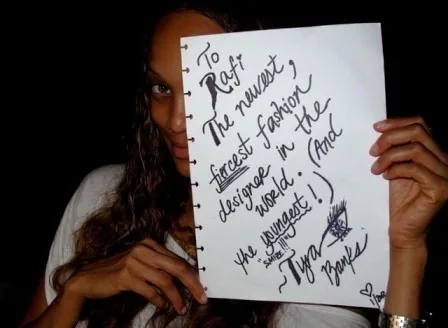 To
Rafi
The newest,
fiercest fashion
designer in the
world. (And
the youngest!)
"smize!!!"
~Tyra
Banks